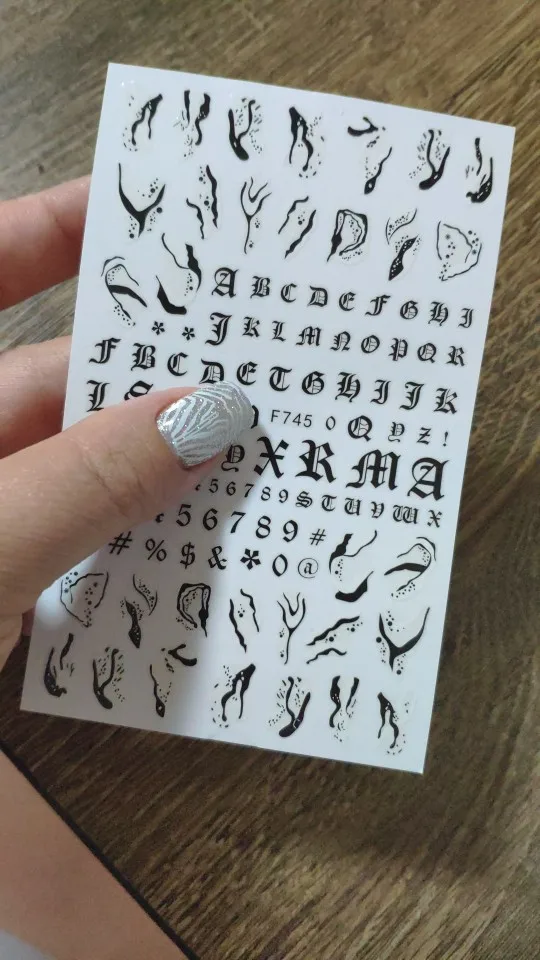 A B C D E F G H I
* * J K L M N O P Q R
F B C D E T G H I J K
L
F745 0 Q Y Z !
Y X R M A
5 6 7 8 9 S T U V W X
5 6 7 8 9 #
# % $ & * 0 @